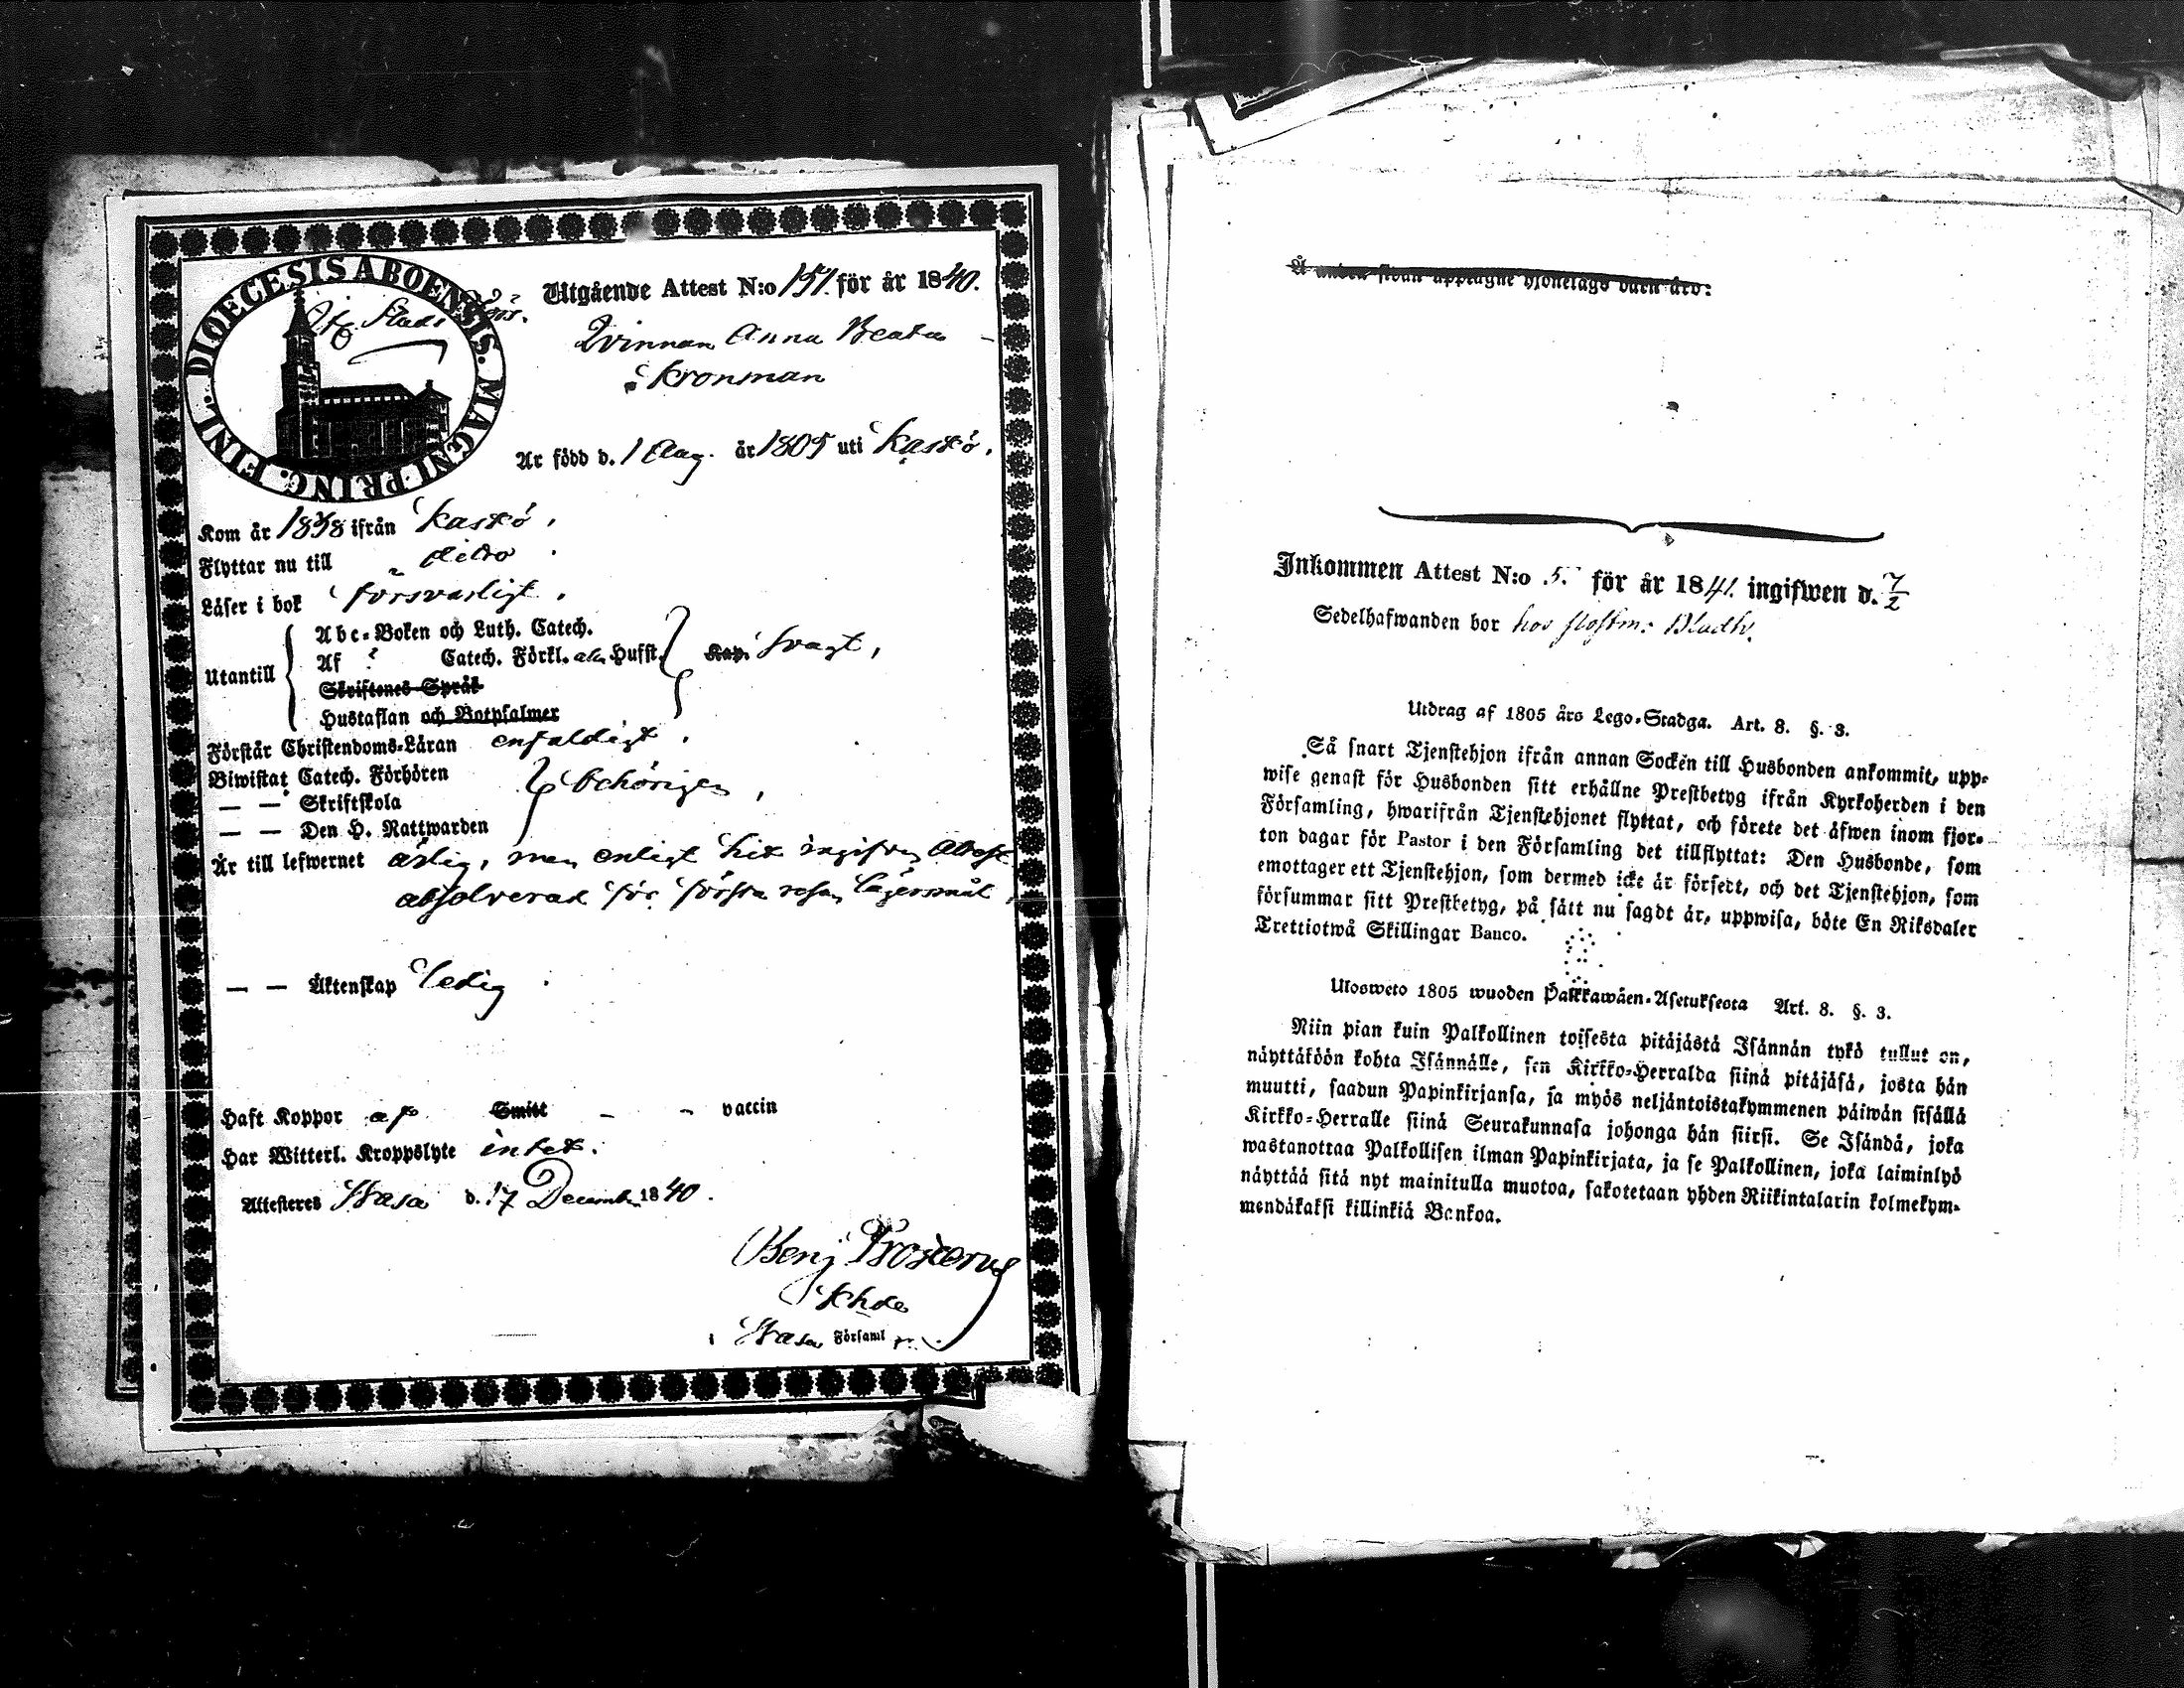 DIOECESIS ABOENSIS. MAGNI PRINC. FINL.
Utgående Attest N:o 151. för år 1840.
Qvinnan Anna Beata
Kronman
Är född d. 1 Aug. år 1805 uti Kaskö.
Kom år 1838 ifrån Kaskö.
Flyttar nu till dito
Läser i bok försvarligt.
Utantill
Abc-Boken och Luth. Catech.
Af Catech. Förkl. Husst.
Kan. svagt,
Skriftenes Språk
Hustaflan och Botpsalmer
Förstår Christendoms-Läran enfaldigt.
Biwistat Catech. Förhören
— — Skriftskola
behörigen,
— — Den H. Nattwarden
Är till lefwernet ärlig, men enligt hit ingifven Attest
absolverad för första resan lägersmål,
— — Äktenskap ledig
Haft Koppor af Smitt - - vaccin
Har Witterl. Kroppslyte intet.
Attesteres Wasa d. 17 December 1840.
Benj. Frosterus
Khde
Wasa Församl
Å andra sidan upptagne hjonelags barn äro:
Inkommen Attest N:o 5. för år 1841. ingifwen d. 7/2
Sedelhafwanden bor hos Bladh.
Utdrag af 1805 års Lego-Stadga. Art. 8. §. 3.
Så snart Tjenstehjon ifrån annan Socken till Husbonden ankommit, upp-
wise genast för Husbonden sitt erhållne Prestbetyg ifrån Kyrkoherden i den
Församling, hwarifrån Tjenstehjonet flyttat, och förete det äfwen inom fjor-
ton dagar för Pastor i den Församling det tillflyttat: Den Husbonde, som
emottager ett Tjenstehjon, som dermed icke är försedt, och det Tjenstehjon, som
försummar sitt Prestbetyg, på sätt nu sagdt är, uppwisa, böte En Riksdaler
Trettiotwå Skillingar Banco.
Ulosweto 1805 wuoden Palkkawäen-Asetuksesta Art. 8. §. 3.
Niin pian kuin Palkollinen toisesta pitäjästä Isännän tykö tullut on,
näyttäköön kohta Isännälle, sen Kirkko-Herralda siinä pitäjäsä, josta hän
muutti, saadun Papinkirjansa, ja myös neljäntoistakymmenen päiwän sisällä
Kirkko-Herralle siinä Seurakunnasa johonga hän siirsi. Se Isändä, joka
wastanottaa Palkollisen ilman Papinkirjata, ja se Palkollinen, joka laiminlyö
näyttää sitä nyt mainitulla muotoa, sakotetaan yhden Riikintalarin kolmekym-
mendäkaksi killinkiä Bankoa.